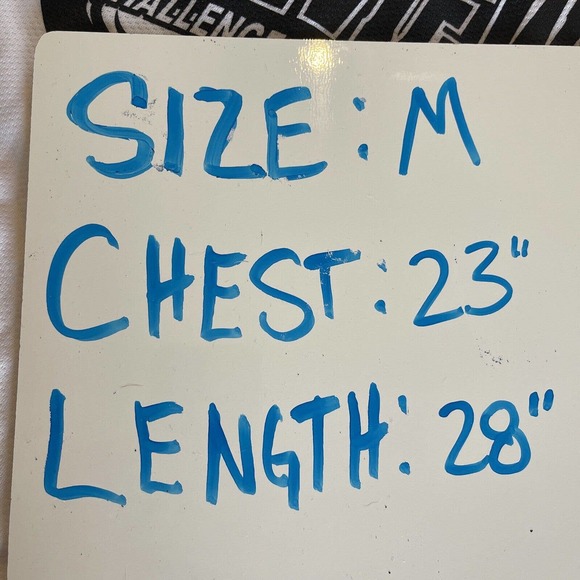 CHALLENGE
SIZE: M
CHEST: 23"
LENGTH: 28"